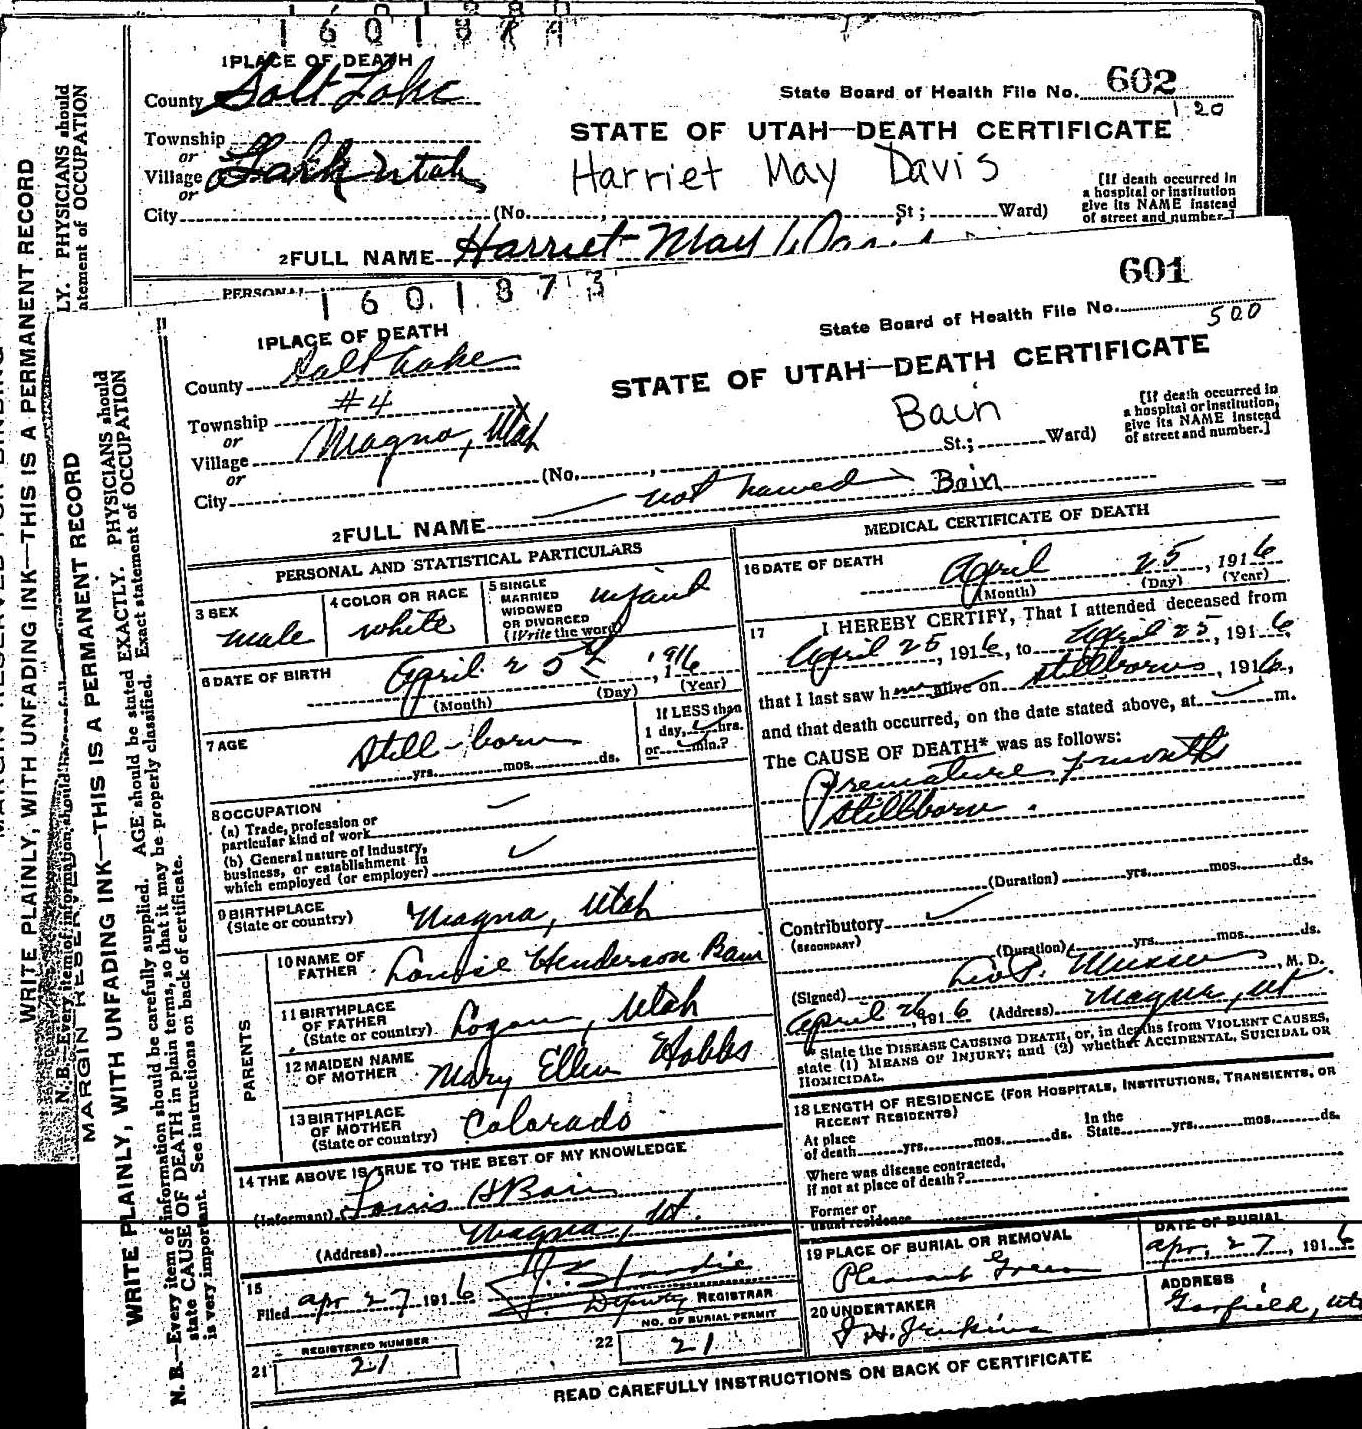 1 6 0 1 8
1 PLACE OF DEATH
County Salt Lake
State Board of Health File No. 602
120
Township
or
Village Lark Utah
or
STATE OF UTAH—DEATH CERTIFICATE
Harriet May Davis
City (No. , St; Ward)
[If death occurred in
a hospital or institution
give its NAME instead
of street and number.]
2 FULL NAME Harriet May Davis
PERSONAL
1 6 0 1 8 7 3
601
1 PLACE OF DEATH
State Board of Health File No.
500
County Salt Lake
STATE OF UTAH—DEATH CERTIFICATE
Township #4
or
Village Magna, Utah
or
Bain
[If death occurred in
a hospital or institution,
give its NAME instead
of street and number.]
City (No. , St.; Ward)
2 FULL NAME not named Bain
PERSONAL AND STATISTICAL PARTICULARS
3 SEX
male
4 COLOR OR RACE
white
5 SINGLE
MARRIED
WIDOWED
OR DIVORCED
(Write the word)
infant
6 DATE OF BIRTH April 25 , 1916
(Month) (Day) (Year)
7 AGE
Still-born
yrs. mos. ds.
If LESS than
1 day, hrs.
or min.?
8 OCCUPATION
(a) Trade, profession or
particular kind of work
(b) General nature of industry,
business, or establishment in
which employed (or employer)
9 BIRTHPLACE
(State or country) Magna, Utah
PARENTS
10 NAME OF
FATHER Louise Henderson Bain
11 BIRTHPLACE
OF FATHER
(State or country) Logan, Utah
12 MAIDEN NAME
OF MOTHER Mary Ellen Hobbs
13 BIRTHPLACE
OF MOTHER
(State or country) Colorado
14 THE ABOVE IS TRUE TO THE BEST OF MY KNOWLEDGE
(Informant) Louis H Bain
(Address) Magna, Ut.
15
Filed Apr 27 1916
Deputy REGISTRAR
REGISTERED NUMBER
21 21
NO. OF BURIAL PERMIT
22 21
MEDICAL CERTIFICATE OF DEATH
16 DATE OF DEATH
April 25 , 1916
(Month) (Day) (Year)
17 I HEREBY CERTIFY, That I attended deceased from
April 25, 1916, to April 25, 1916,
that I last saw h alive on stillborn, 1916,
and that death occurred, on the date stated above, at m.
The CAUSE OF DEATH* was as follows:
Premature 7 months
Stillborn.
(Duration) yrs. mos. ds.
Contributory
(SECONDARY)
(Duration) yrs. mos. ds.
(Signed) , M. D.
April 26, 1916 (Address) Magna, Ut
* State the DISEASE CAUSING DEATH, or, in deaths from VIOLENT CAUSES,
state (1) MEANS OF INJURY; and (2) whether ACCIDENTAL, SUICIDAL OR
HOMICIDAL.
18 LENGTH OF RESIDENCE (FOR HOSPITALS, INSTITUTIONS, TRANSIENTS, OR
RECENT RESIDENTS)
At place
of death yrs. mos. ds.
In the
State yrs. mos. ds.
Where was disease contracted,
if not at place of death?
Former or
usual residence
19 PLACE OF BURIAL OR REMOVAL
Pleasant Green
DATE OF BURIAL
Apr, 27, 1916
20 UNDERTAKER
J H. Jenkins
ADDRESS
Garfield, Uta
READ CAREFULLY INSTRUCTIONS ON BACK OF CERTIFICATE
WRITE PLAINLY, WITH UNFADING INK—THIS IS A PERMANENT RECORD
N. B.—Every item of information should
LY. PHYSICIANS should
atement of OCCUPATION
MARGIN RESERVED
WRITE PLAINLY, WITH UNFADING INK—THIS IS A PERMANENT RECORD
N. B.—Every item of information should be carefully supplied. AGE should be stated EXACTLY. PHYSICIANS should
state CAUSE OF DEATH in plain terms, so that it may be properly classified. Exact statement of OCCUPATION
is very important. See instructions on back of certificate.